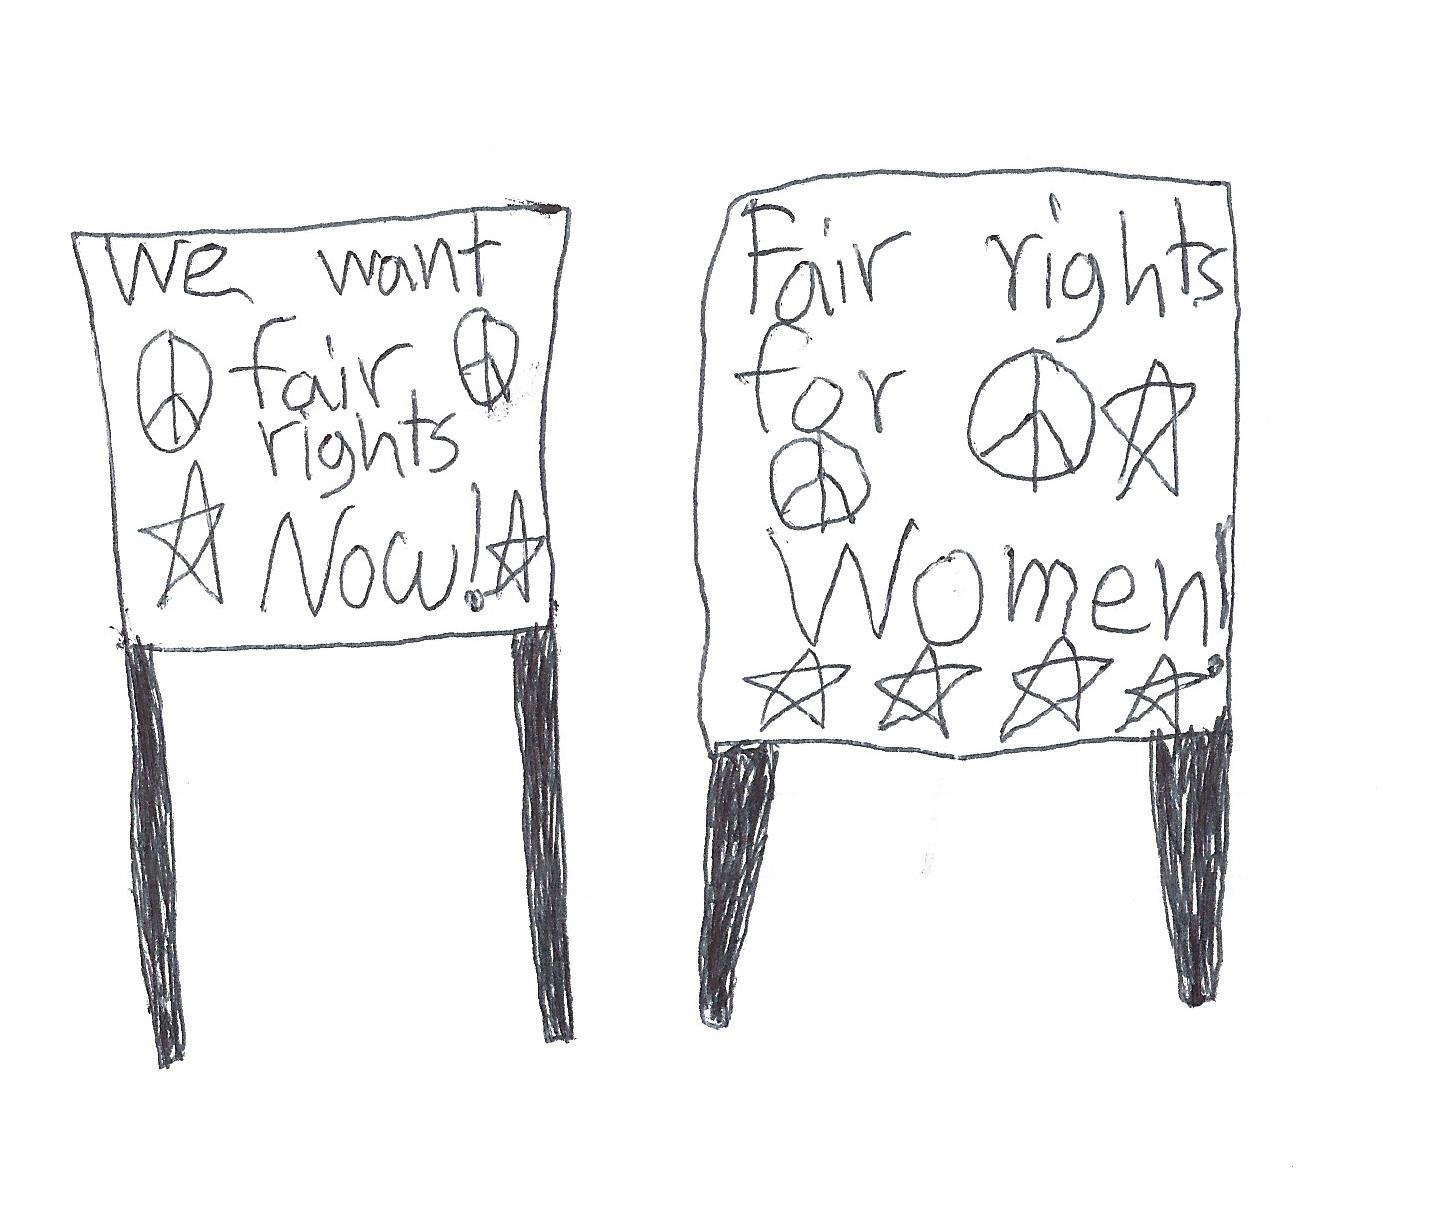 We want
fair
rights
Now!
Fair rights
for
Women!